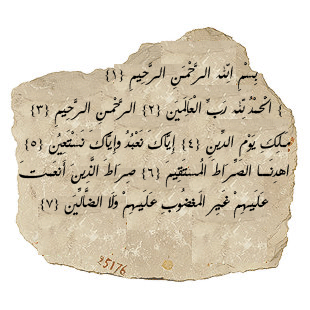 بِسْمِ اللهِ الرَّحْمَنِ الرَّحِيمِ {١}
} الْحَمْدُ لِلّهِ رَبِّ الْعَالَمِينَ {٢} الرَّحْمَنِ الرَّحِيمِ {٣}
مَالِكِ يَوْمِ الدِّينِ {٤} إِيَّاكَ نَعْبُدُ وإِيَّاكَ نَسْتَعِينُ {٥}
اهدِنَــا الصِّرَاطَ المُستَقِيمَ {٦} صِرَاطَ الَّذِينَ أَنعَمتَ
عَلَيهِمْ غَيرِ المَغضُوبِ عَلَيهِمْ وَلاَ الضَّالِّينَ {٧}
25176